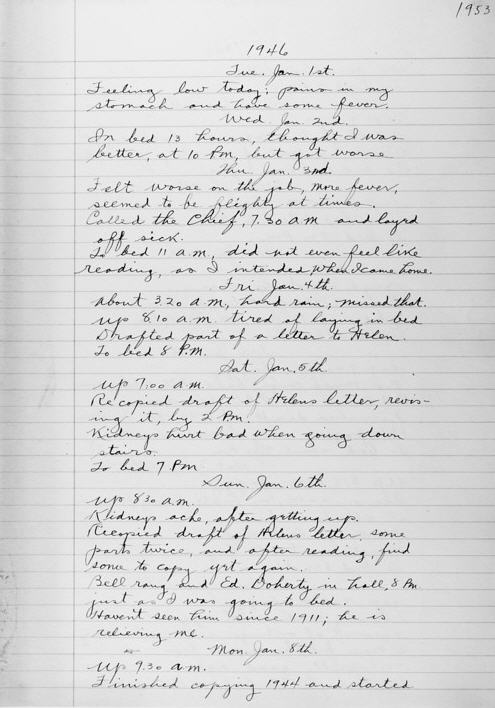 1953
1946
Tue. Jan. 1st.
Feeling low today; pains in my
stomach and have some fever.
Wed. Jan. 2nd.
In bed 13 hours, thought I was
better, at 10 Pm, but got worse
Thu. Jan. 3nd.
Felt worse on the job, more fever,
seemed to be flighty at times.
Called the Chief, 7.30 a m and layed
off sick.
To bed 11 a.m., did not even feel like
reading, as I intended when I came home.
Fri. Jan. 4th.
About 3.20 a m, hard rain; missed that.
up 8.10 a.m. tired of laying in bed
Drafted part of a letter to Helen.
To bed 8 P.m.
Sat. Jan. 5th.
up 7:00 a m.
Recopied draft of Helens letter, revis-
ing it, by 2 Pm.
Kidneys hurt bad when going down
stairs.
To bed 7 Pm
Sun. Jan. 6th.
up 8 30 a.m.
Kidneys ache, after getting up.
Recopied draft of Helens letter, some
parts twice, and after reading, find
some to copy yet again.
Bell rang and Ed. Doherty in hall, 8 Pm
just as I was going to bed.
Havent seen him since 1911; he is
relieving me.
Mon. Jan. 8th.
up 9.30 a.m.
Finished copying 1944 and started